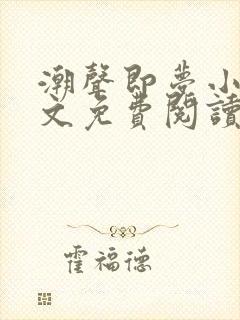 潮聲即夢小
文免費閱讀
霍福德